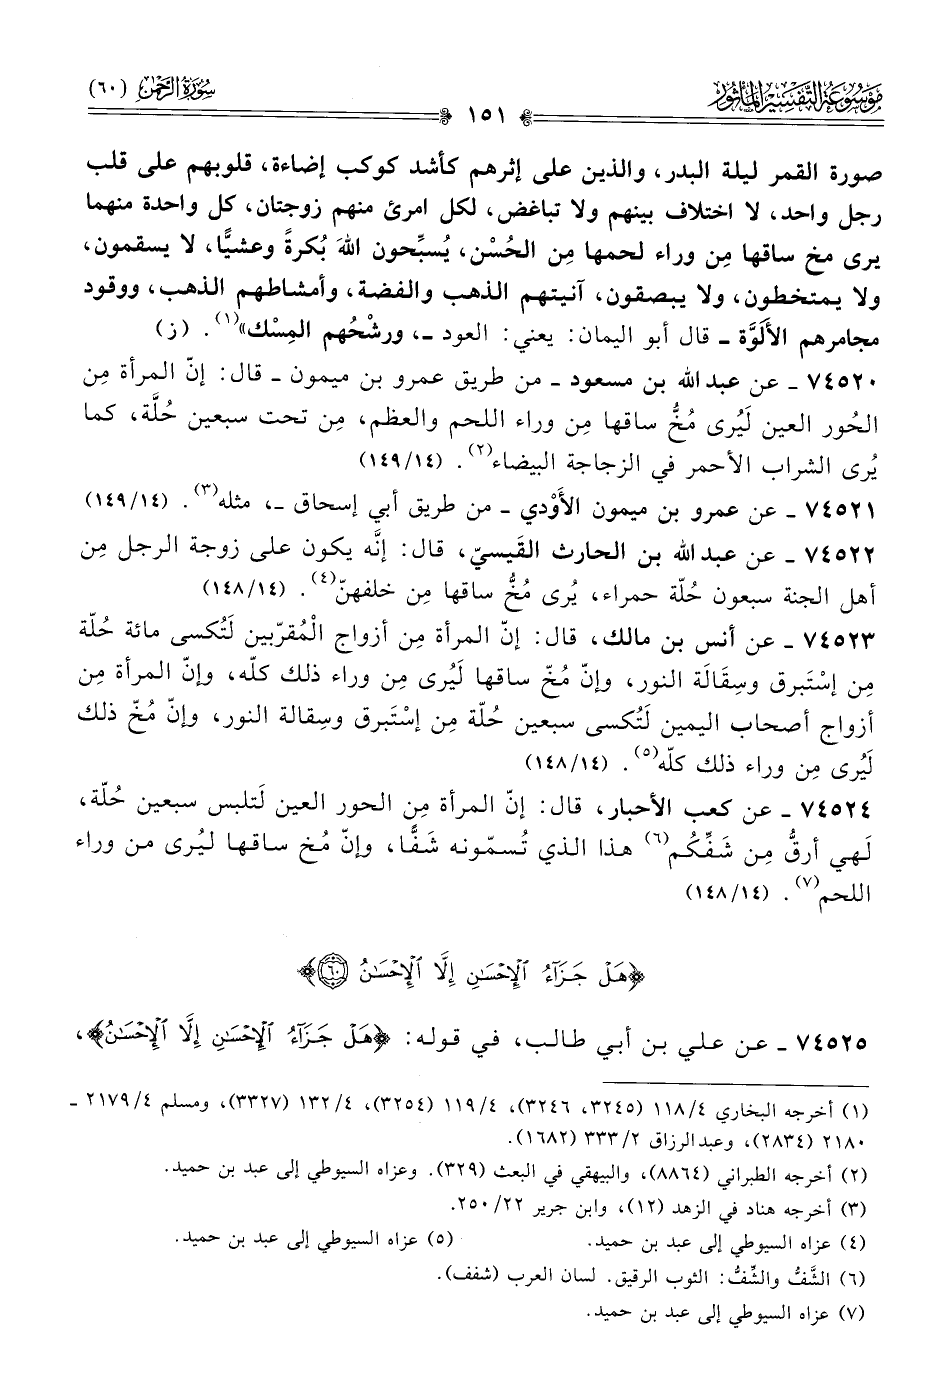 مَوْسُوعَةُ التَّفْسِيرِ المَأْثُور
١٥١
سُورَةُ الرَّحْمٰن (٦٠)
صورة القمر ليلة البدر، والذين على إثرهم كأشد كوكب إضاءة، قلوبهم على قلب
رجل واحد، لا اختلاف بينهم ولا تباغض، لكل امرئ منهم زوجتان، كل واحدة منهما
يرى مخ ساقها مِن وراء لحمها مِن الحُسْن، يُسبِّحون اللهَ بُكرةً وعشيًّا، لا يسقمون،
ولا يمتخطون، ولا يبصقون، آنيتهم الذهب والفضة، وأمشاطهم الذهب، ووقود
مجامرهم الأَلُوَّة ـ قال أبو اليمان: يعني: العود ـ، ورشْحُهم المِسْك»(١). (ز)
٧٤٥٢٠ ـ عن عبد الله بن مسعود ـ من طريق عمرو بن ميمون ـ قال: إنّ المرأة مِن
الحُور العين لَيُرى مُخُّ ساقها مِن وراء اللحم والعظم، مِن تحت سبعين حُلَّة، كما
يُرى الشراب الأحمر في الزجاجة البيضاء(٢). (١٤٩/١٤)
٧٤٥٢١ ـ عن عمرو بن ميمون الأَوْدي ـ من طريق أبي إسحاق ـ، مثله(٣). (١٤٩/١٤)
٧٤٥٢٢ ـ عن عبد الله بن الحارث القَيسيّ، قال: إنَّه يكون على زوجة الرجل مِن
أهل الجنة سبعون حُلّة حمراء، يُرى مُخُّ ساقها مِن خلفهنّ(٤). (١٤٨/١٤)
٧٤٥٢٣ ـ عن أنس بن مالك، قال: إنّ المرأة مِن أزواج الْمُقرّبين لَتُكسى مائة حُلّة
مِن إسْتَبرق وسِقَالَة النور، وإنّ مُخّ ساقها لَيُرى مِن وراء ذلك كله، وإنّ المرأة مِن
أزواج أصحاب اليمين لَتُكسى سبعين حُلّة مِن إسْتَبرق وسِقالة النور، وإنّ مُخّ ذلك
لَيُرى مِن وراء ذلك كلّه(٥). (١٤٨/١٤)
٧٤٥٢٤ ـ عن كعب الأحبار، قال: إنّ المرأة مِن الحور العين لَتلبس سبعين حُلّة،
لَهي أرقُّ مِن شَفِّكُم(٦) هذا الذي تُسمّونه شَفًّا، وإنّ مُخ ساقها ليُرى من وراء
اللحم(٧). (١٤٨/١٤)
﴿هَلْ جَزَآءُ ٱلْإِحْسَٰنِ إِلَّا ٱلْإِحْسَٰنُ ٦٠﴾
٧٤٥٢٥ ـ عن علي بن أبي طالب، في قوله: ﴿هَلْ جَزَآءُ ٱلْإِحْسَٰنِ إِلَّا ٱلْإِحْسَٰنُ﴾،
(١) أخرجه البخاري ١١٨/٤ (٣٢٤٥، ٣٢٤٦)، ١١٩/٤ (٣٢٥٤)، ١٣٢/٤ (٣٣٢٧)، ومسلم ٢١٧٩/٤ ـ
٢١٨٠ (٢٨٣٤)، وعبد الرزاق ٣٣٣/٢ (١٦٨٢).
(٢) أخرجه الطبراني (٨٨٦٤)، والبيهقي في البعث (٣٢٩). وعزاه السيوطي إلى عبد بن حميد.
(٣) أخرجه هناد في الزهد (١٢)، وابن جرير ٢٥٠/٢٢.
(٤) عزاه السيوطي إلى عبد بن حميد. (٥) عزاه السيوطي إلى عبد بن حميد.
(٦) الشَّفُّ والشِّفُّ: الثوب الرقيق. لسان العرب (شفف).
(٧) عزاه السيوطي إلى عبد بن حميد.